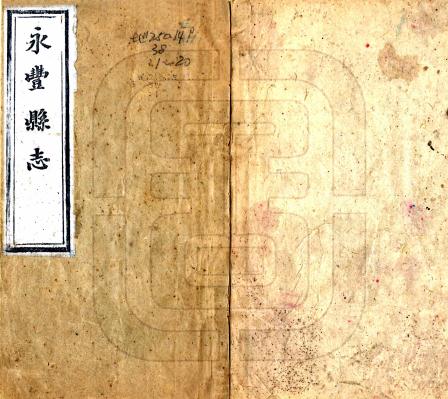 永豐縣志
38
21~20